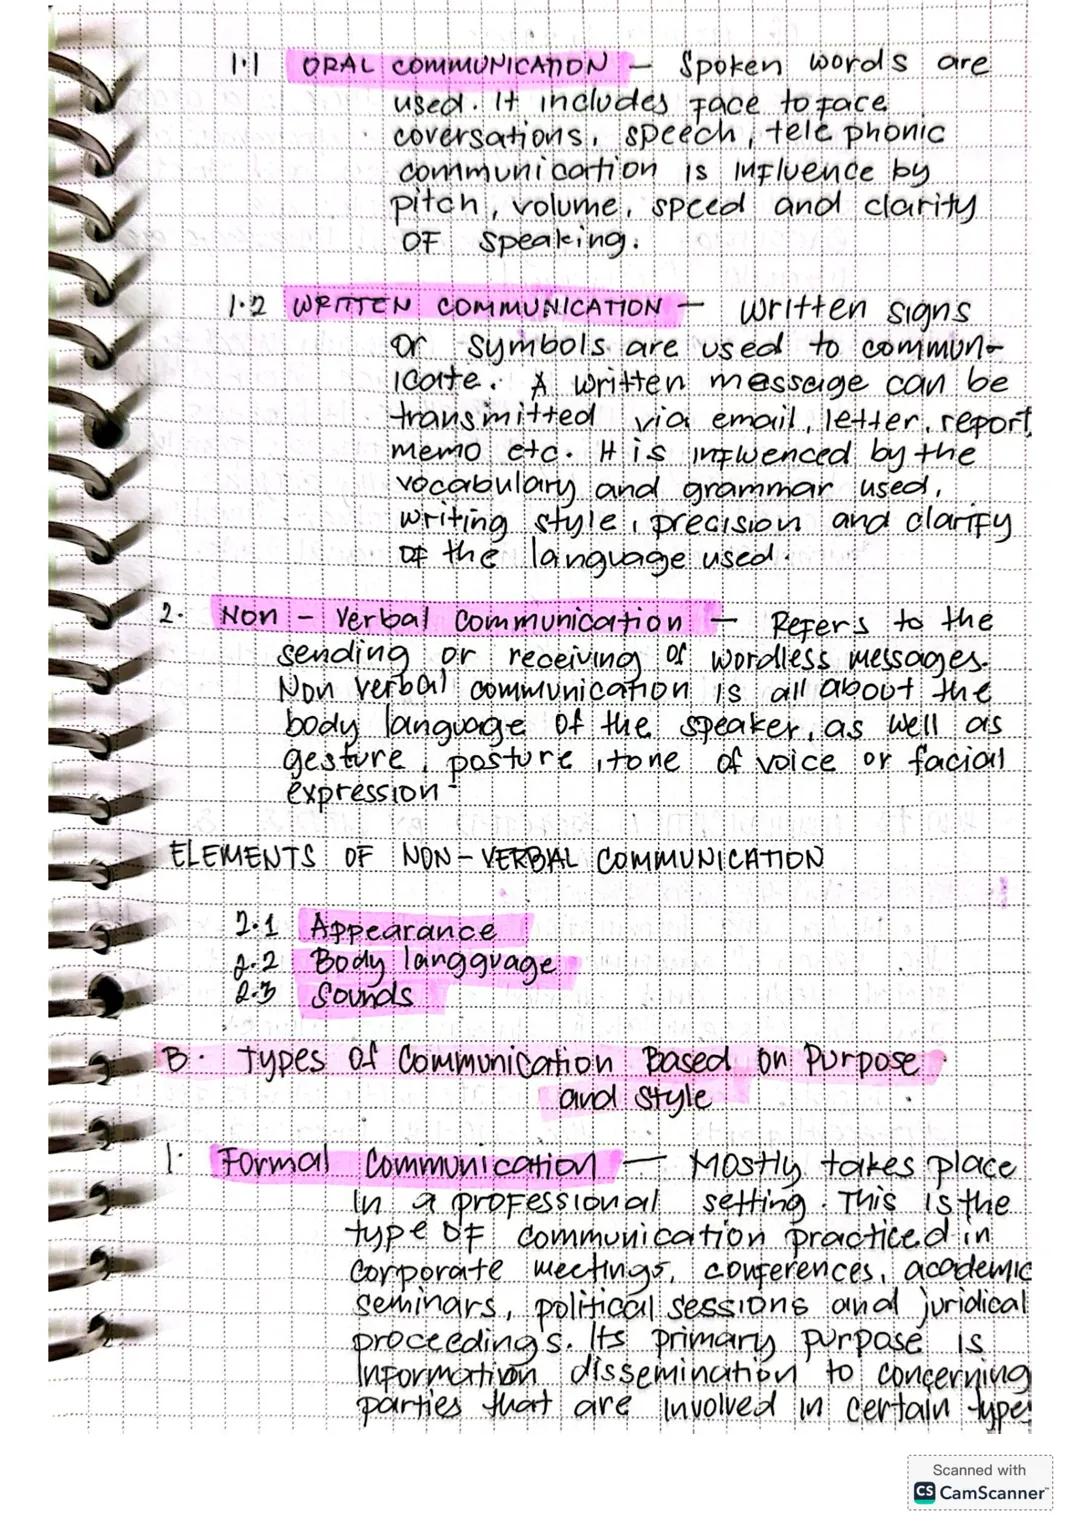 1.1 ORAL COMMUNICATION - Spoken words are
used. It includes face to face
coversations, speech, tele phonic
communication is influence by
pitch, volume, speed and clarity
OF speaking.
1.2 WRITTEN COMMUNICATION - written signs
or symbols are used to commun-
icate. A written message can be
transmitted via email, letter, report,
memo etc. It is influenced by the
vocabulary and grammar used,
writing style, precision and clarity
of the language used.
2. Non - Verbal Communication - Refers to the
sending or receiving of wordless messages.
Non verbal communication is all about the
body language of the speaker, as well as
gesture, posture, tone of voice or facial
expression.
ELEMENTS OF NON-VERBAL COMMUNICATION
2.1 Appearance
2.2 Body langguage
2.3 Sounds
B. Types of Communication Based on Purpose
and Style
1. Formal Communication - Mostly takes place
in a professional setting. This is the
type OF communication practiced in
corporate meetings, conferences, academic
seminars, political sessions and juridical
proceedings. Its primary purpose is
information dissemination to concerning
parties that are involved in certain type
Scanned with
CS CamScanner